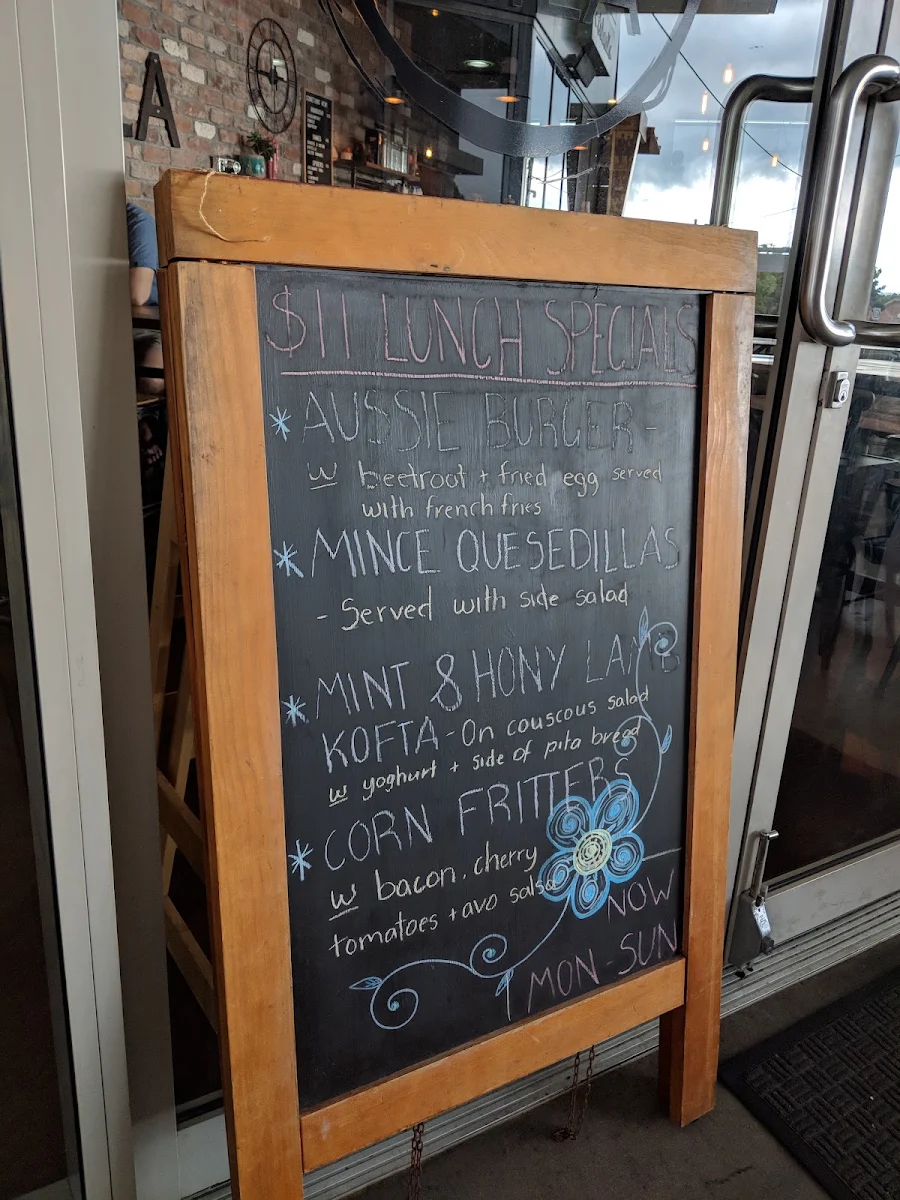 A
$11 LUNCH SPECIALS
* AUSSIE BURGER -
w beetroot + fried egg served
with french fries
* MINCE QUESEDILLAS
- Served with side salad
* MINT & HONY LAMB
KOFTA - On couscous salad
w yoghurt + side of pita bread
* CORN FRITTERS
w bacon, cherry
tomatoes + avo salsa
NOW
MON - SUN